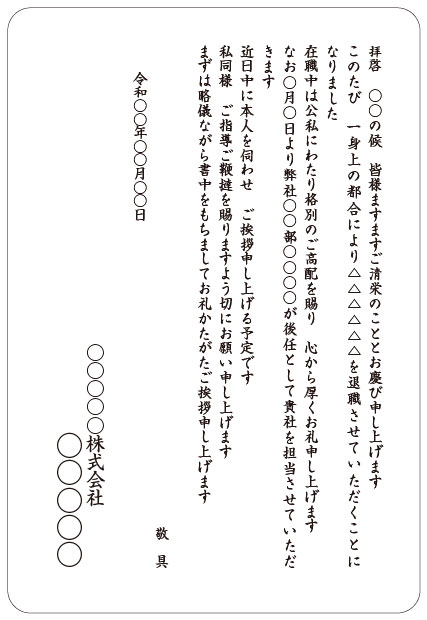 拝啓　〇〇の候　皆様ますますご清栄のこととお慶び申し上げます
このたび　一身上の都合により△△△△△△を退職させていただくことに
なりました
在職中は公私にわたり格別のご高配を賜り　心から厚くお礼申し上げます
なお〇月〇日より弊社〇〇部〇〇〇〇が後任として貴社を担当させていただ
きます
近日中に本人を伺わせ　ご挨拶申し上げる予定です
私同様　ご指導ご鞭撻を賜りますよう切にお願い申し上げます
まずは略儀ながら書中をもちましてお礼かたがたご挨拶申し上げます
敬　具
令和〇〇年〇〇月〇〇日
〇〇〇〇〇株式会社
〇〇〇〇〇